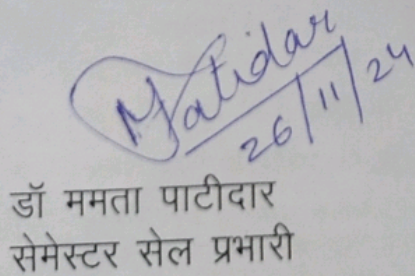 MPatidar
26/11/24
डॉ ममता पाटीदार
सेमेस्टर सेल प्रभारी